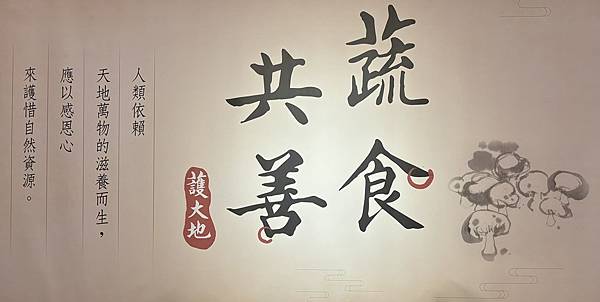 蔬食
共善
護大地
人類依賴
天地萬物的滋養而生，
應以感恩心
來護惜自然資源。